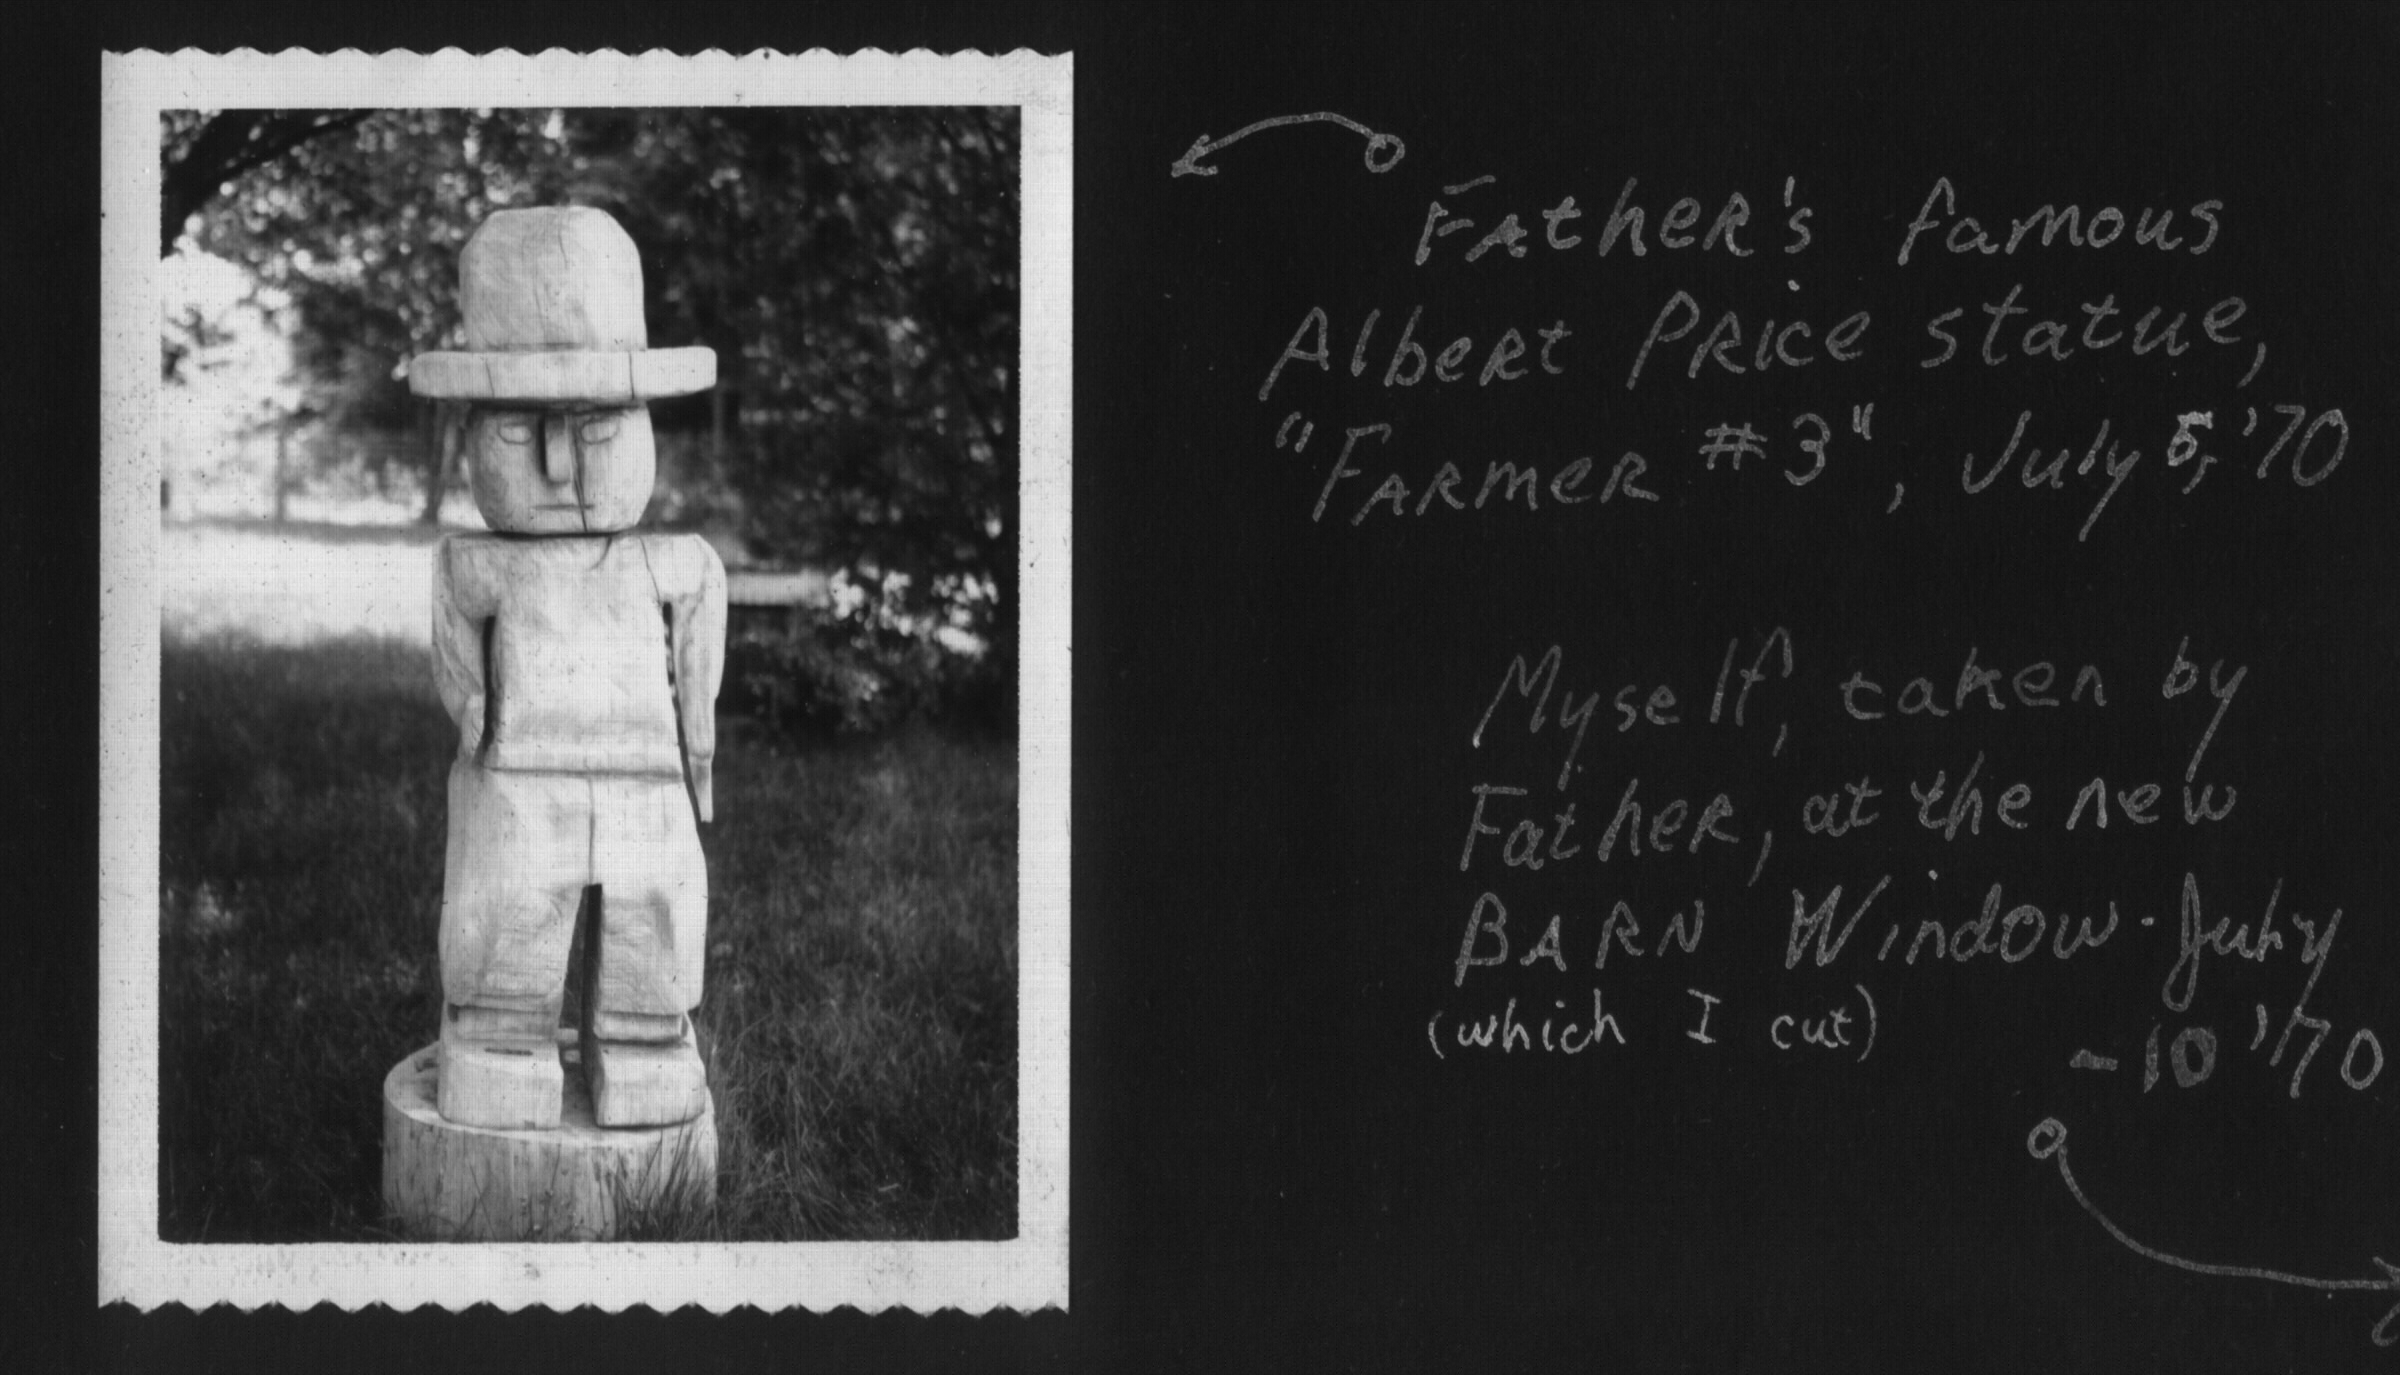 Father's famous
Albert Price statue,
"Farmer #3", July 5, '70
Myself, taken by
Father, at the new
BARN Window - July
(which I cut)
- 10 '70